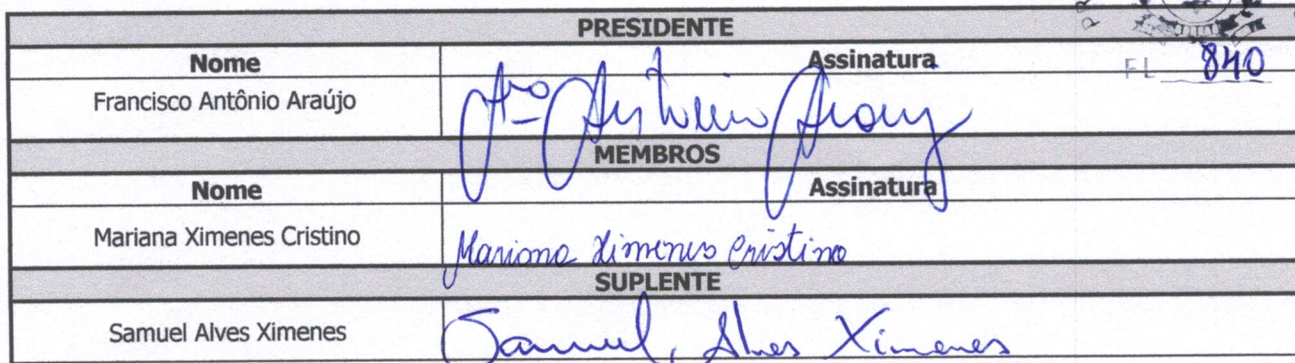 PRESIDENTE
Nome Assinatura
FL 840
Francisco Antônio Araújo Fco Antônio Araúj
MEMBROS
Nome Assinatura
Mariana Ximenes Cristino Mariana Ximenes Cristino
SUPLENTE
Samuel Alves Ximenes Samuel Alves Ximenes